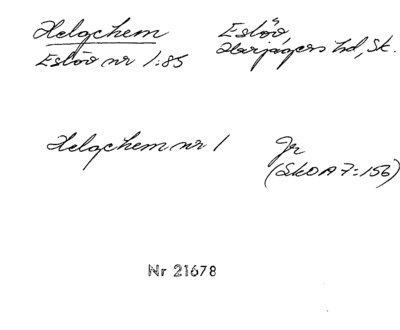 Helgchem Eslöv
Eslöv nr 1:85 Harjagers hd, Sk.
Helgchem nr 1 Jr
(SkOA7:156)
Nr 21678